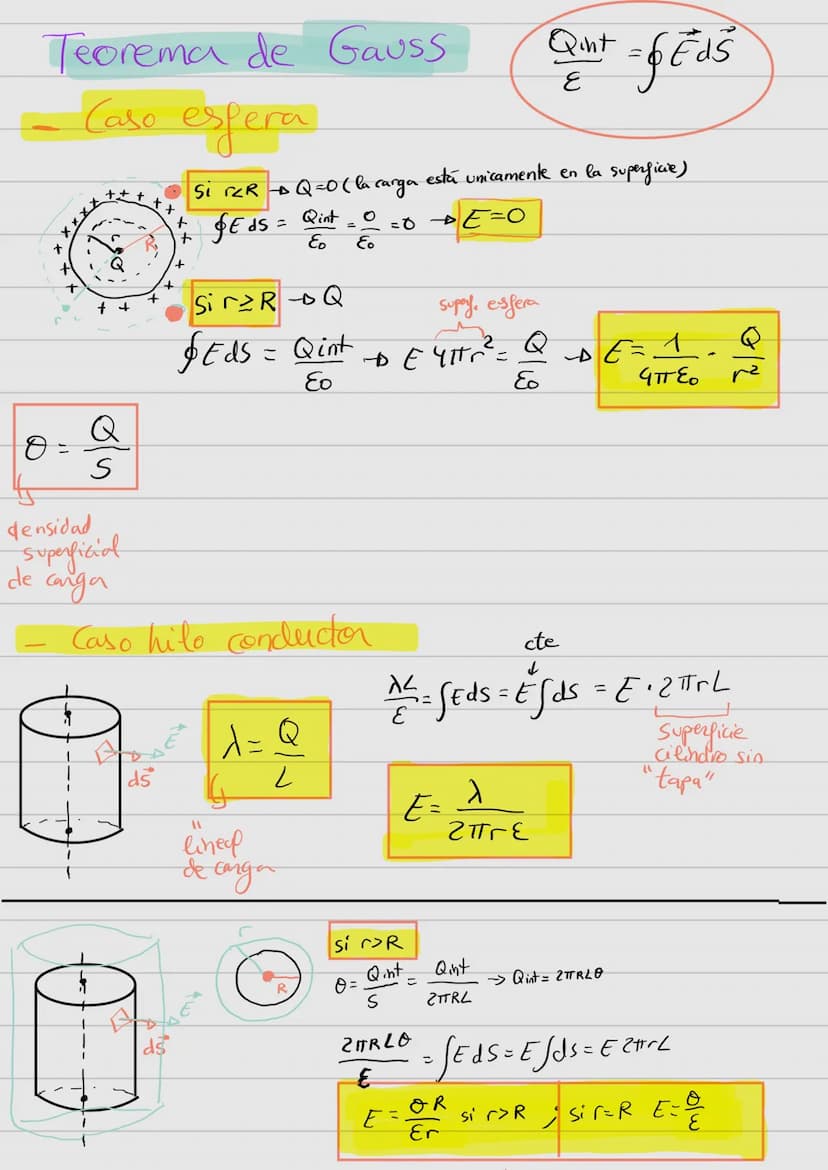 Teorema de Gauss
Qint/ε = ∮E⃗dS⃗
- Caso esfera
+ + + + + + + + + + + + + + + + + + + +
R
Q
r
si r<R → Q=0 (la carga está unicamente en la superficie)
∮E ds = Qint/ε₀ = 0/ε₀ = 0 → E=0
Si r≥R → Q
superf. esfera
∮E dS = Qint/ε₀ → E 4πr² = Q/ε₀ → E = 1/4πε₀ · Q/r²
θ = Q/S
densidad
superficial
de carga
- Caso hilo conductor
cte
λL/ε = ∫E ds = E∫ds = E · 2πrL
Superficie
cilindro sin
"tapa"
E⃗
dS⃗
λ = Q/L
"
lineal
de carga
E = λ/2πrε
r
R
E⃗
dS⃗
si r>R
θ = Qint/S = Qint/2πRL → Qint = 2πRLθ
2πRLθ/ε = ∫E dS = E∫ds = E 2πrL
E = θR/εr si r>R ; si r=R E=θ/ε